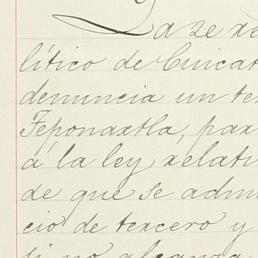 Pase
lítico de Cuicat
denuncia un te
Teponaxtla, par
á la ley relati
de que se admi
cio de tercero y
si no alcanza